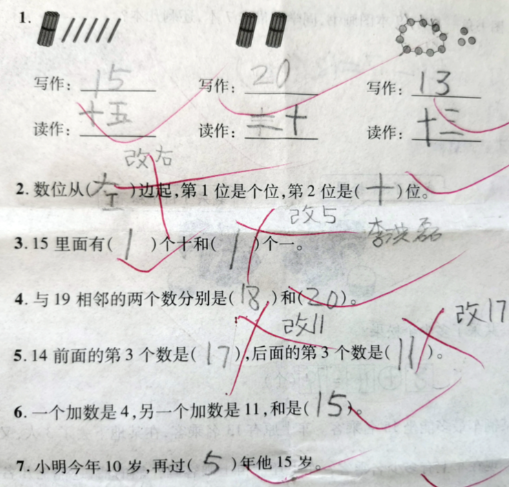 1.
写作：15 写作：20 写作：13
读作：十五 读作：二十 读作：十三
改右
2.数位从(左)边起,第1位是个位,第2位是(十)位。
改5
3.15里面有(1)个十和(1)个一。李洪磊
4.与19相邻的两个数分别是(18)和(20)。
改11 改17
5.14前面的第3个数是(17),后面的第3个数是(11)。
6.一个加数是4,另一个加数是11,和是(15)。
7.小明今年10岁,再过(5)年他15岁。